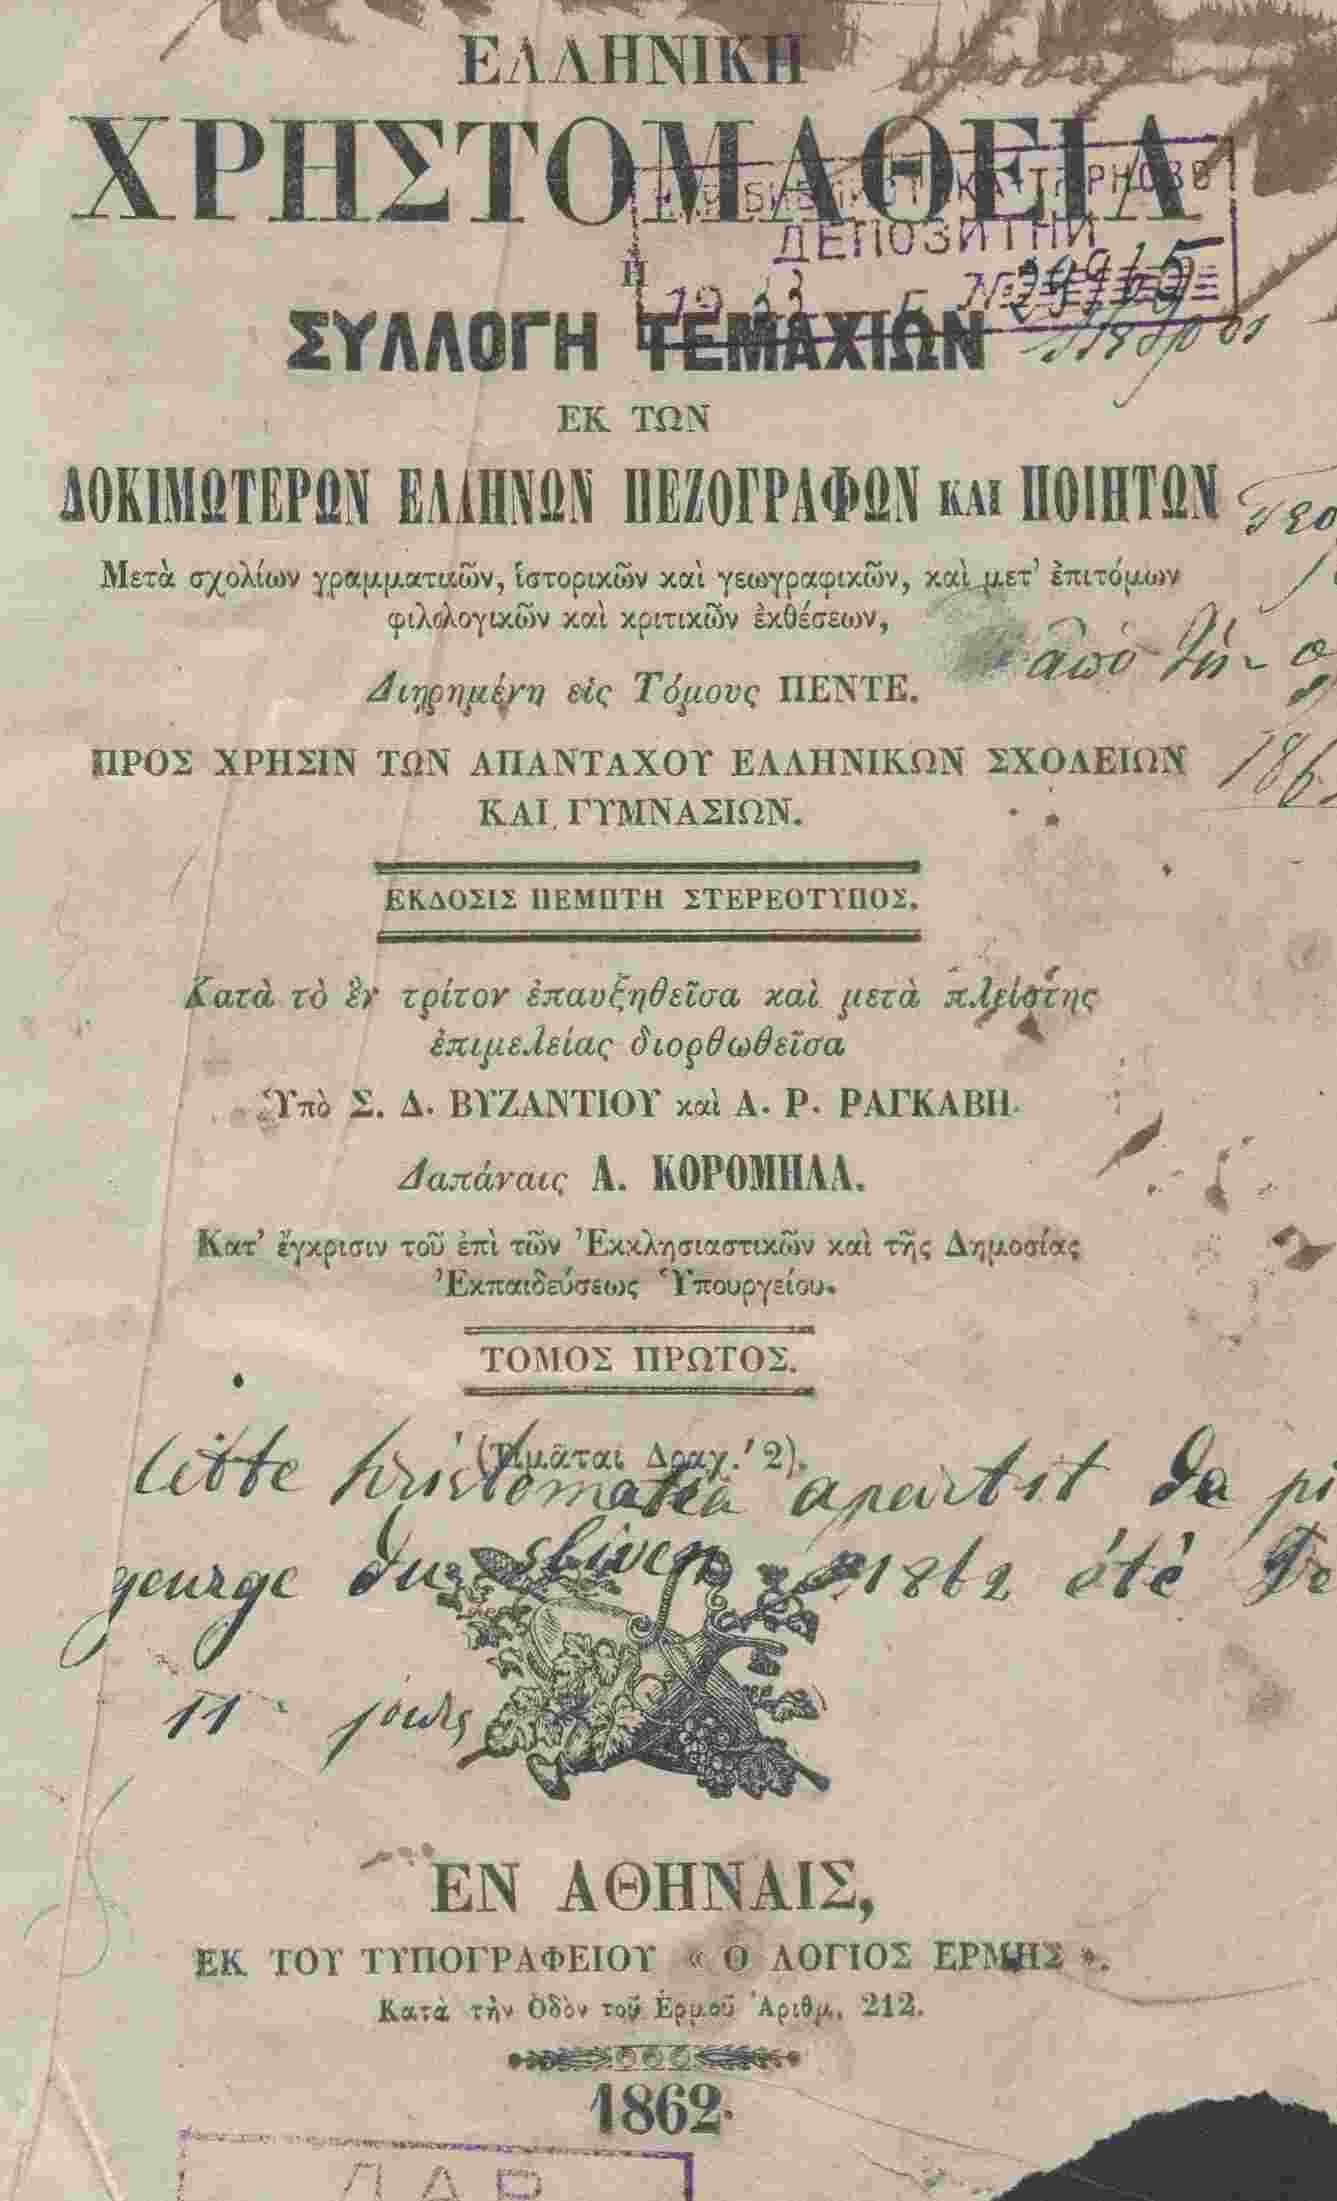 ΕΛΛΗΝΙΚΗ
ΧΡΗΣΤΟΜΑΘΕΙΑ
ΔΕΠΟЗИТНИ
Ἢ
ΣΥΛΛΟΓΗ ΤΕΜΑΧΙΩΝ
ΕΚ ΤΩΝ
ΔΟΚΙΜΩΤΕΡΩΝ ΕΛΛΗΝΩΝ ΠΕΖΟΓΡΑΦΩΝ ΚΑΙ ΠΟΙΗΤΩΝ
Μετὰ σχολίων γραμματικῶν, ἱστορικῶν καὶ γεωγραφικῶν, καὶ μετ' ἐπιτόμων
φιλολογικῶν καὶ κριτικῶν ἐκθέσεων,
ἀπὸ
Διῃρημένη εἰς Τόμους ΠΕΝΤΕ.
ΠΡΟΣ ΧΡΗΣΙΝ ΤΩΝ ΑΠΑΝΤΑΧΟΥ ΕΛΛΗΝΙΚΩΝ ΣΧΟΛΕΙΩΝ
ΚΑΙ ΓΥΜΝΑΣΙΩΝ.
ΕΚΔΟΣΙΣ ΠΕΜΠΤΗ ΣΤΕΡΕΟΤΥΠΟΣ.
Κατὰ τὸ ἓν τρίτον ἐπαυξηθεῖσα καὶ μετὰ πλείστης
ἐπιμελείας διορθωθεῖσα
Ὑπὸ Σ. Δ. ΒΥΖΑΝΤΙΟΥ καὶ Α. Ρ. ΡΑΓΚΑΒΗ.
Δαπάναις Α. ΚΟΡΟΜΗΛΑ.
Κατ' ἔγκρισιν τοῦ ἐπὶ τῶν Ἐκκλησιαστικῶν καὶ τῆς Δημοσίας
Ἐκπαιδεύσεως Ὑπουργείου.
ΤΟΜΟΣ ΠΡΩΤΟΣ.
(Τιμᾶται Δραχ. 2).
Cette hristomatea apartit da
george du sliven 1862 été
11
ΕΝ ΑΘΗΝΑΙΣ,
ΕΚ ΤΟΥ ΤΥΠΟΓΡΑΦΕΙΟΥ « Ο ΛΟΓΙΟΣ ΕΡΜΗΣ ».
Κατὰ τὴν Ὁδὸν τοῦ Ἑρμοῦ Ἀριθμ. 212.
1862.
ДАР